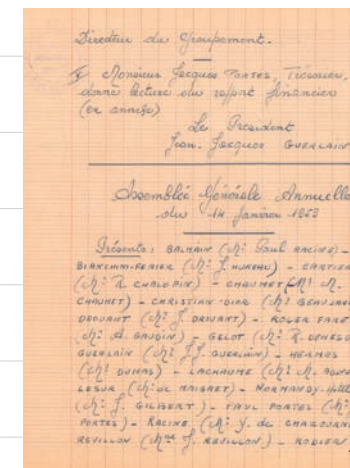 Directeur du Groupement.
Monsieur Jacques PORTES, Trésorier,
donne lecture du rapport financier
(en annexe)
Le Président
Jean-Jacques GUERLAIN
Assemblée Générale Annuelle
du 14 Janvier 1959
Présents : BALMAIN (Mr Paul RACINE) -
BIANCHINI-FERIER (Mr J. ) - CARTIER
(Mr R. CHALOPIN) - CHAUMET (Mr M.
CHAUMET) - CHRISTIAN-DIOR (Mr
DROUANT (Mr J. DROUANT) - ROGER FARE
(Mr A. GAUDIN) - GELOT (Mr R.
GUERLAIN (Mr J.J. GUERLAIN) - HERMES
(Mr DUMAS) - LACHAUME (Mr
LESUR (Mr de MAIGRET) - NORMANDY-Hôtel
(Mr J. GILBERT) - PAUL PORTES (Mr
PORTES) - RACINE (Mr Y. de
REVILLON (Mme J. REVILLON) - RODIER